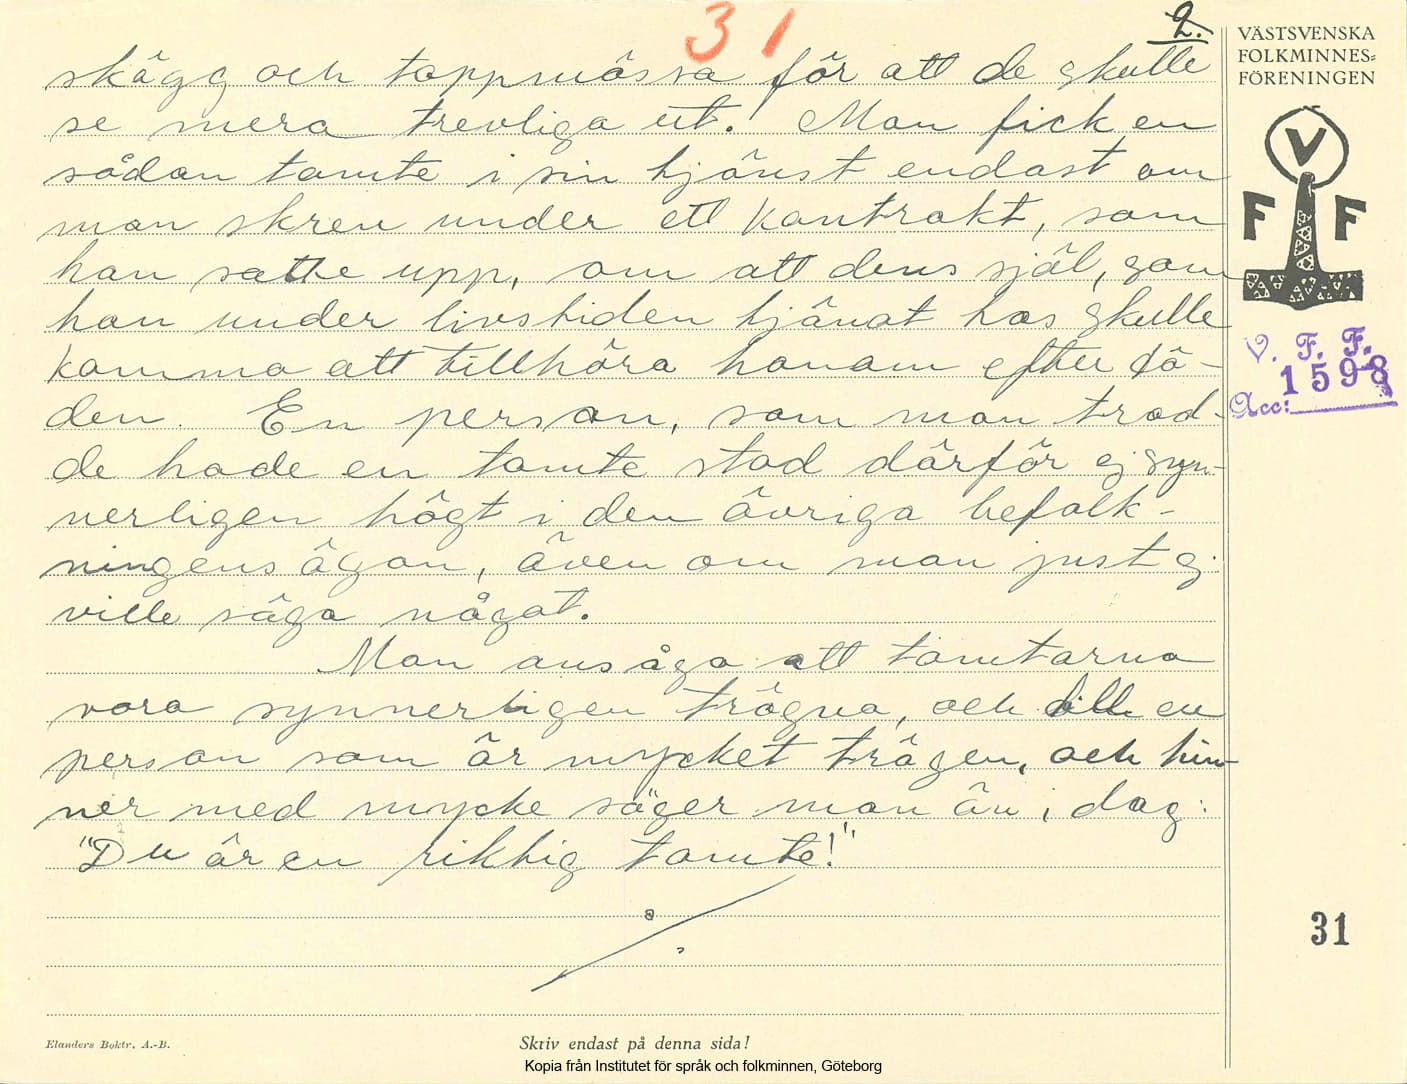 31
2.
skägg och toppmössa för att de skulle
se mera trevliga ut. Man fick en
sådan tomte i sin tjänst endast om
man skrev under ett kontrakt, som
han satte upp, om att dens själ, som
han under livstiden tjänat hos skulle
komma att tillhöra honom efter dö-
den. En person, som man trod-
de hade en tomte stod därför ej syn-
nerligen högt i den övriga befolk-
ningens ögon, även om man just ej
ville säga något.
Man ansåga att tomtarna
vora synnerligen trägna, och till en
person som är mycket trägen, och hin-
ner med mycke säger man än i dag:
"Du är en riktig tomte!"
VÄSTSVENSKA
FOLKMINNES=
FÖRENINGEN
V
F F
V. F. F.
Acc: 1598
31
Elanders Boktr. A.-B.
Skriv endast på denna sida!
Kopia från Institutet för språk och folkminnen, Göteborg